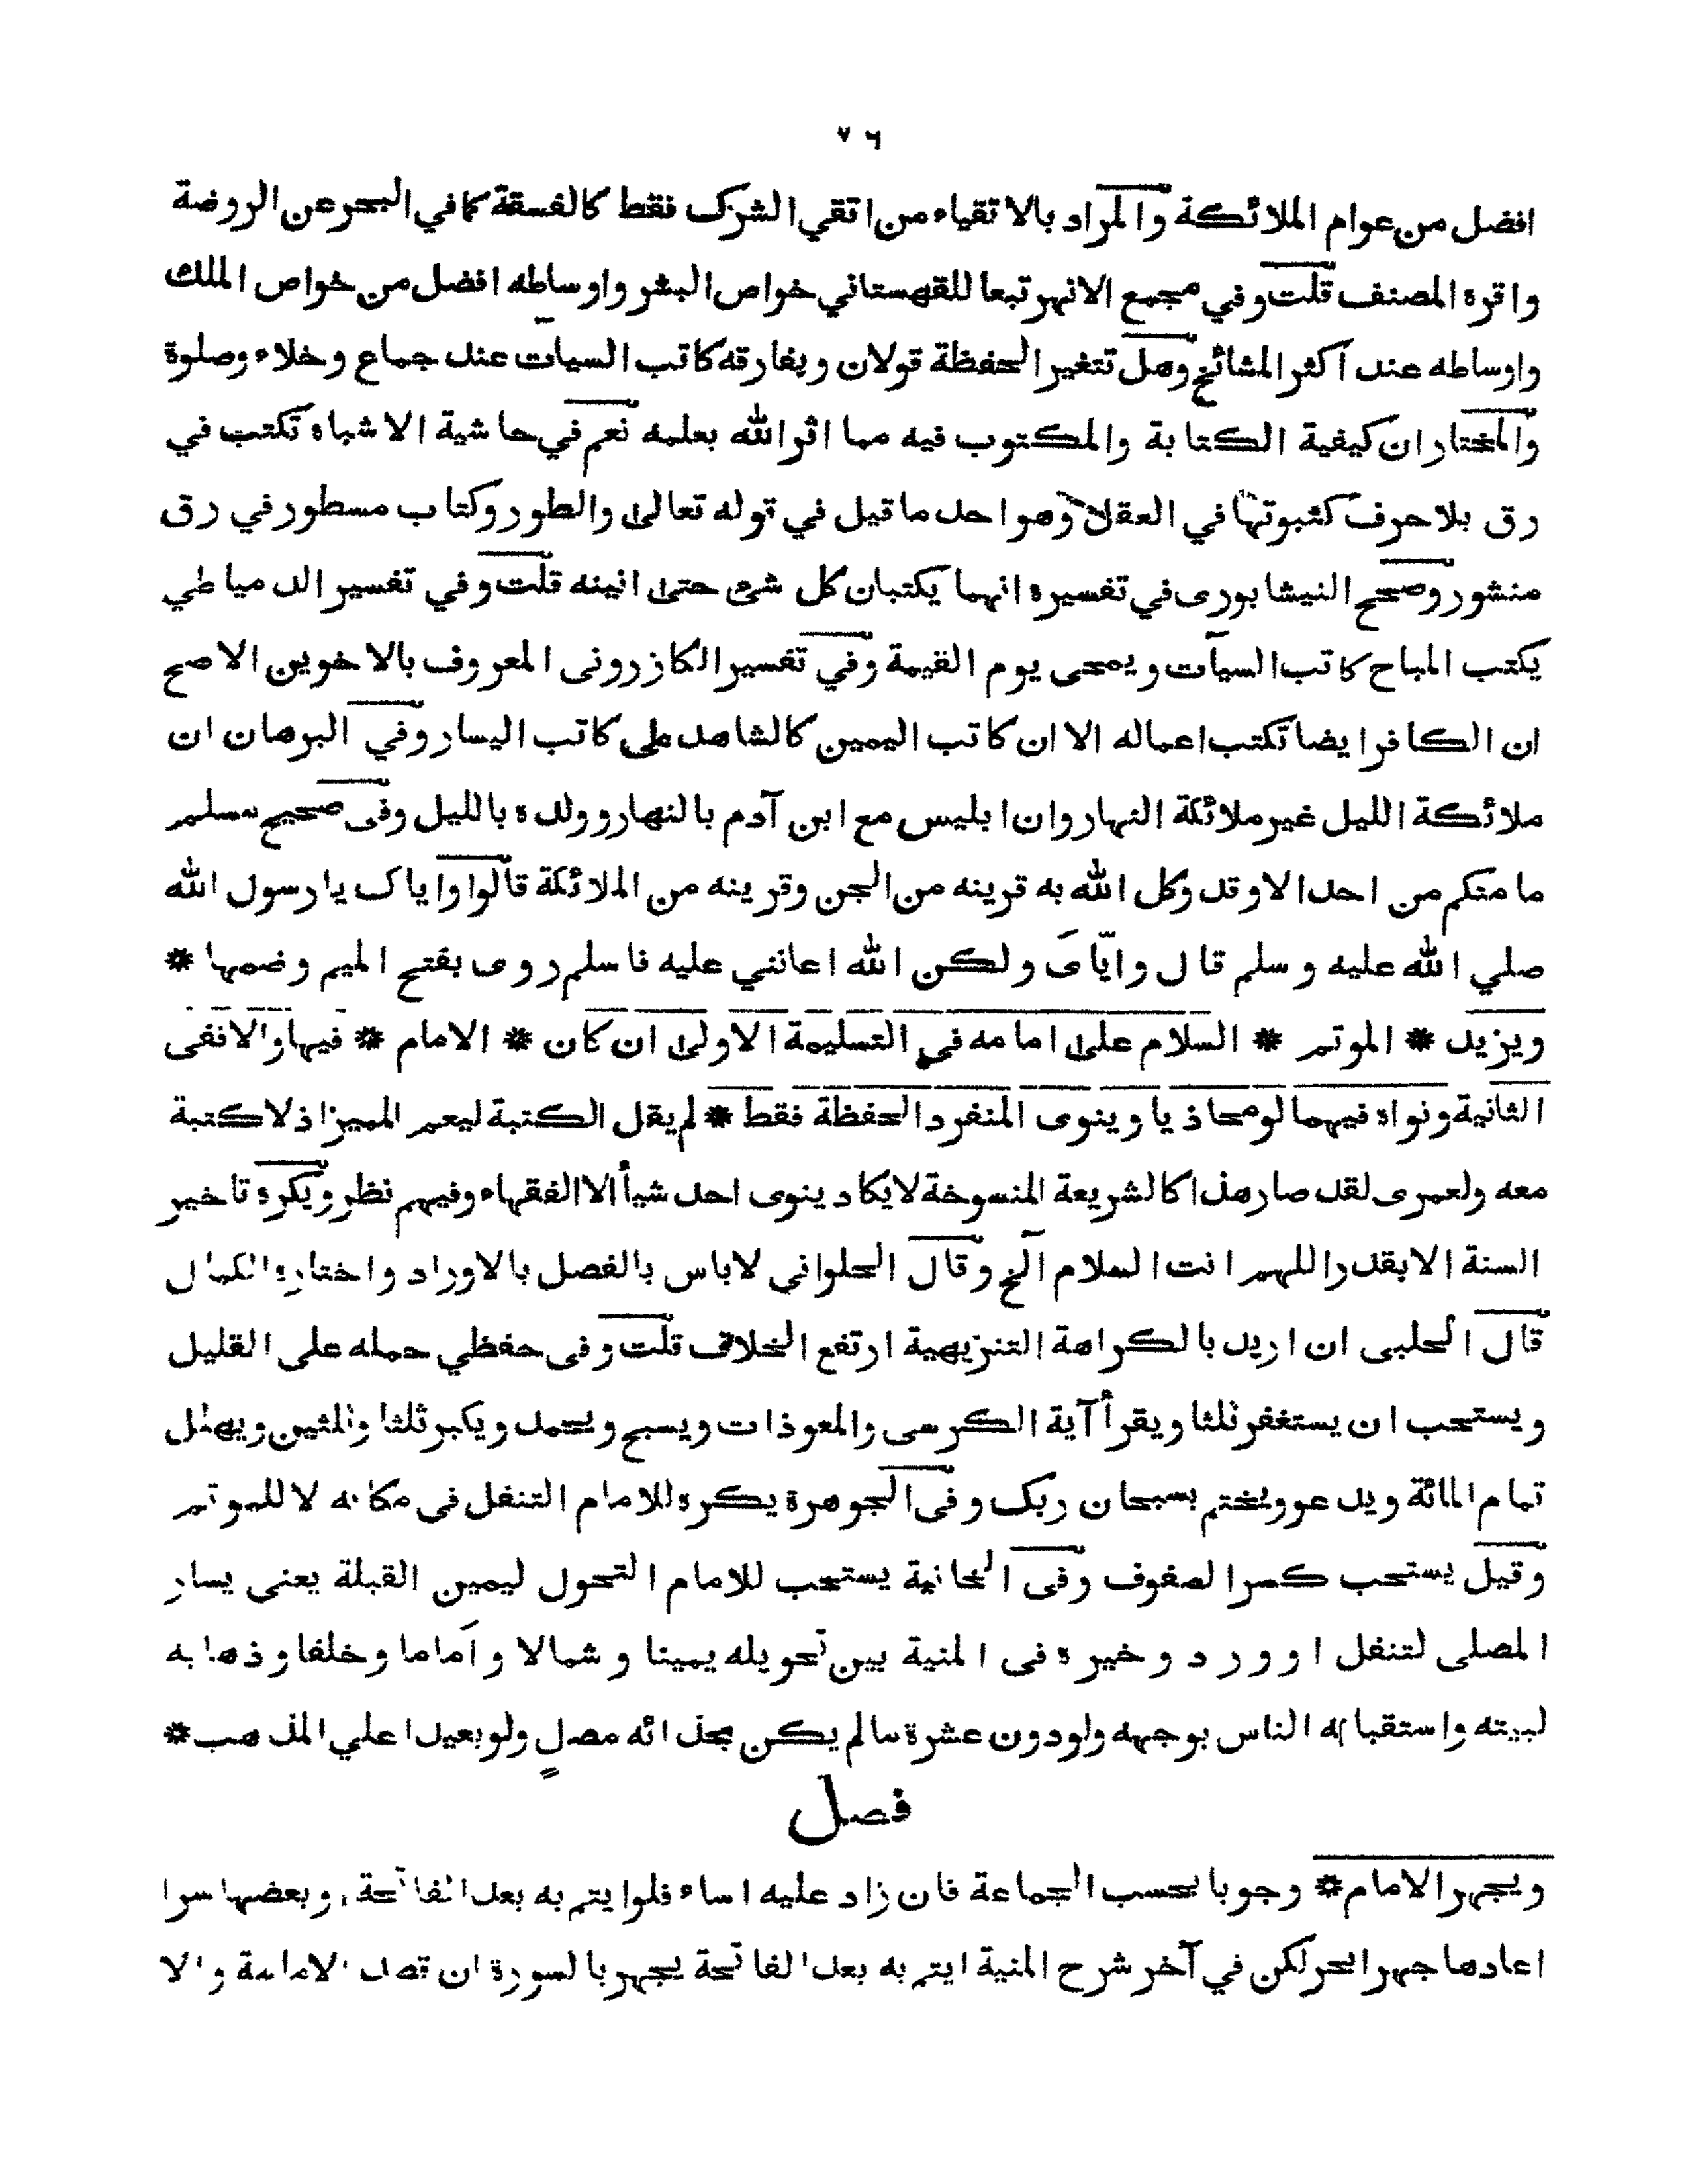 ٧٦
افضل من عوام الملائكة والمراد بالاتقياء من اتقي الشرك فقط كالفسقة كما في البحر عن الروضة
واقره المصنف قلت وفي مجمع الانهر تبعا للقهستاني خواص البشر واوساطه افضل من خواص الملك
واوساطه عند اكثر المشائخ وهل تتغير الحفظة قولان ويفارقه كاتب السيات عند جماع وخلاء وصلوة
والمختار ان كيفية الكتابة والمكتوب فيه مما اثر الله بعلمه نعم في حاشية الاشباه تكتب في
رق بلا حرف كثبوتها في العقل وهو احد ما قيل في قوله تعالى والطور وكتاب مسطور في رق
منشور وصحح النيشابورى في تفسيره انهما يكتبان كل شئ حتى انينه قلت وفي تفسير الدمياطي
يكتب المباح كاتب السيآت ويمحى يوم القيمة وفي تفسير الكازرونى المعروف بالاخوين الاصح
ان الكافر ايضا تكتب اعماله الا ان كاتب اليمين كالشاهد على كاتب اليسار وفي البرهان ان
ملائكة الليل غير ملائكة النهار وان ابليس مع ابن آدم بالنهار وولده بالليل وفى صحيح مسلم
ما منكم من احد الا وقد وكل الله به قرينه من الجن وقرينه من الملائكة قالوا واياك يا رسول الله
صلي الله عليه وسلم قال وايّاىَ ولكن الله اعانني عليه فاسلم روى بفتح الميم وضمها *
ويزيد * الموتم * السلام على امامه في التسليمة الاولى ان كان * الامام * فيها والا ففى
الثانية ونواه فيهما لو محاذيا وينوى المنفرد الحفظة فقط * لم يقل الكتبة ليعم المميز اذ لا كتبة
معه ولعمرى لقد صار هذا كالشريعة المنسوخة لا يكاد ينوى احد شيأ الا الفقهاء وفيهم نظر ويكره تاخير
السنة الا بقدر اللهم انت السلام الخ وقال الحلوانى لاباس بالفصل بالاوراد واختاره الكمال
قال الحلبى ان اريد بالكراهة التنزيهية ارتفع الخلاف قلت وفى حفظي حمله على القليل
ويستحب ان يستغفر ثلثا ويقرأ آية الكرسى والمعوذات ويسبح ويحمد ويكبر ثلثا وثلثين ويهلل
تمام المائة ويدعو ويختم بسبحان ربك وفى الجوهرة يكره للامام التنفل فى مكانه لا للموتم
وقيل يستحب كسر الصفوف وفى الخانية يستحب للامام التحول ليمين القبلة يعنى يسار
المصلى لتنفل او ورد وخيره فى المنية بين تحويله يمينا وشمالا واَماما وخلفا وذهابه
لبيته واستقباله الناس بوجهه ولو دون عشرة ما لم يكن بحذائه مصلٍ ولو بعيدا علي المذهب *
فصل
ويجهر الامام * وجوبا بحسب الجماعة فان زاد عليه اساء فلو ايتم به بعد الفاتحة، وبعضها سرا
اعادها جهرا بحر لكن في آخر شرح المنية ايتم به بعد الفاتحة يجهر بالسورة ان قصد الامامة والا